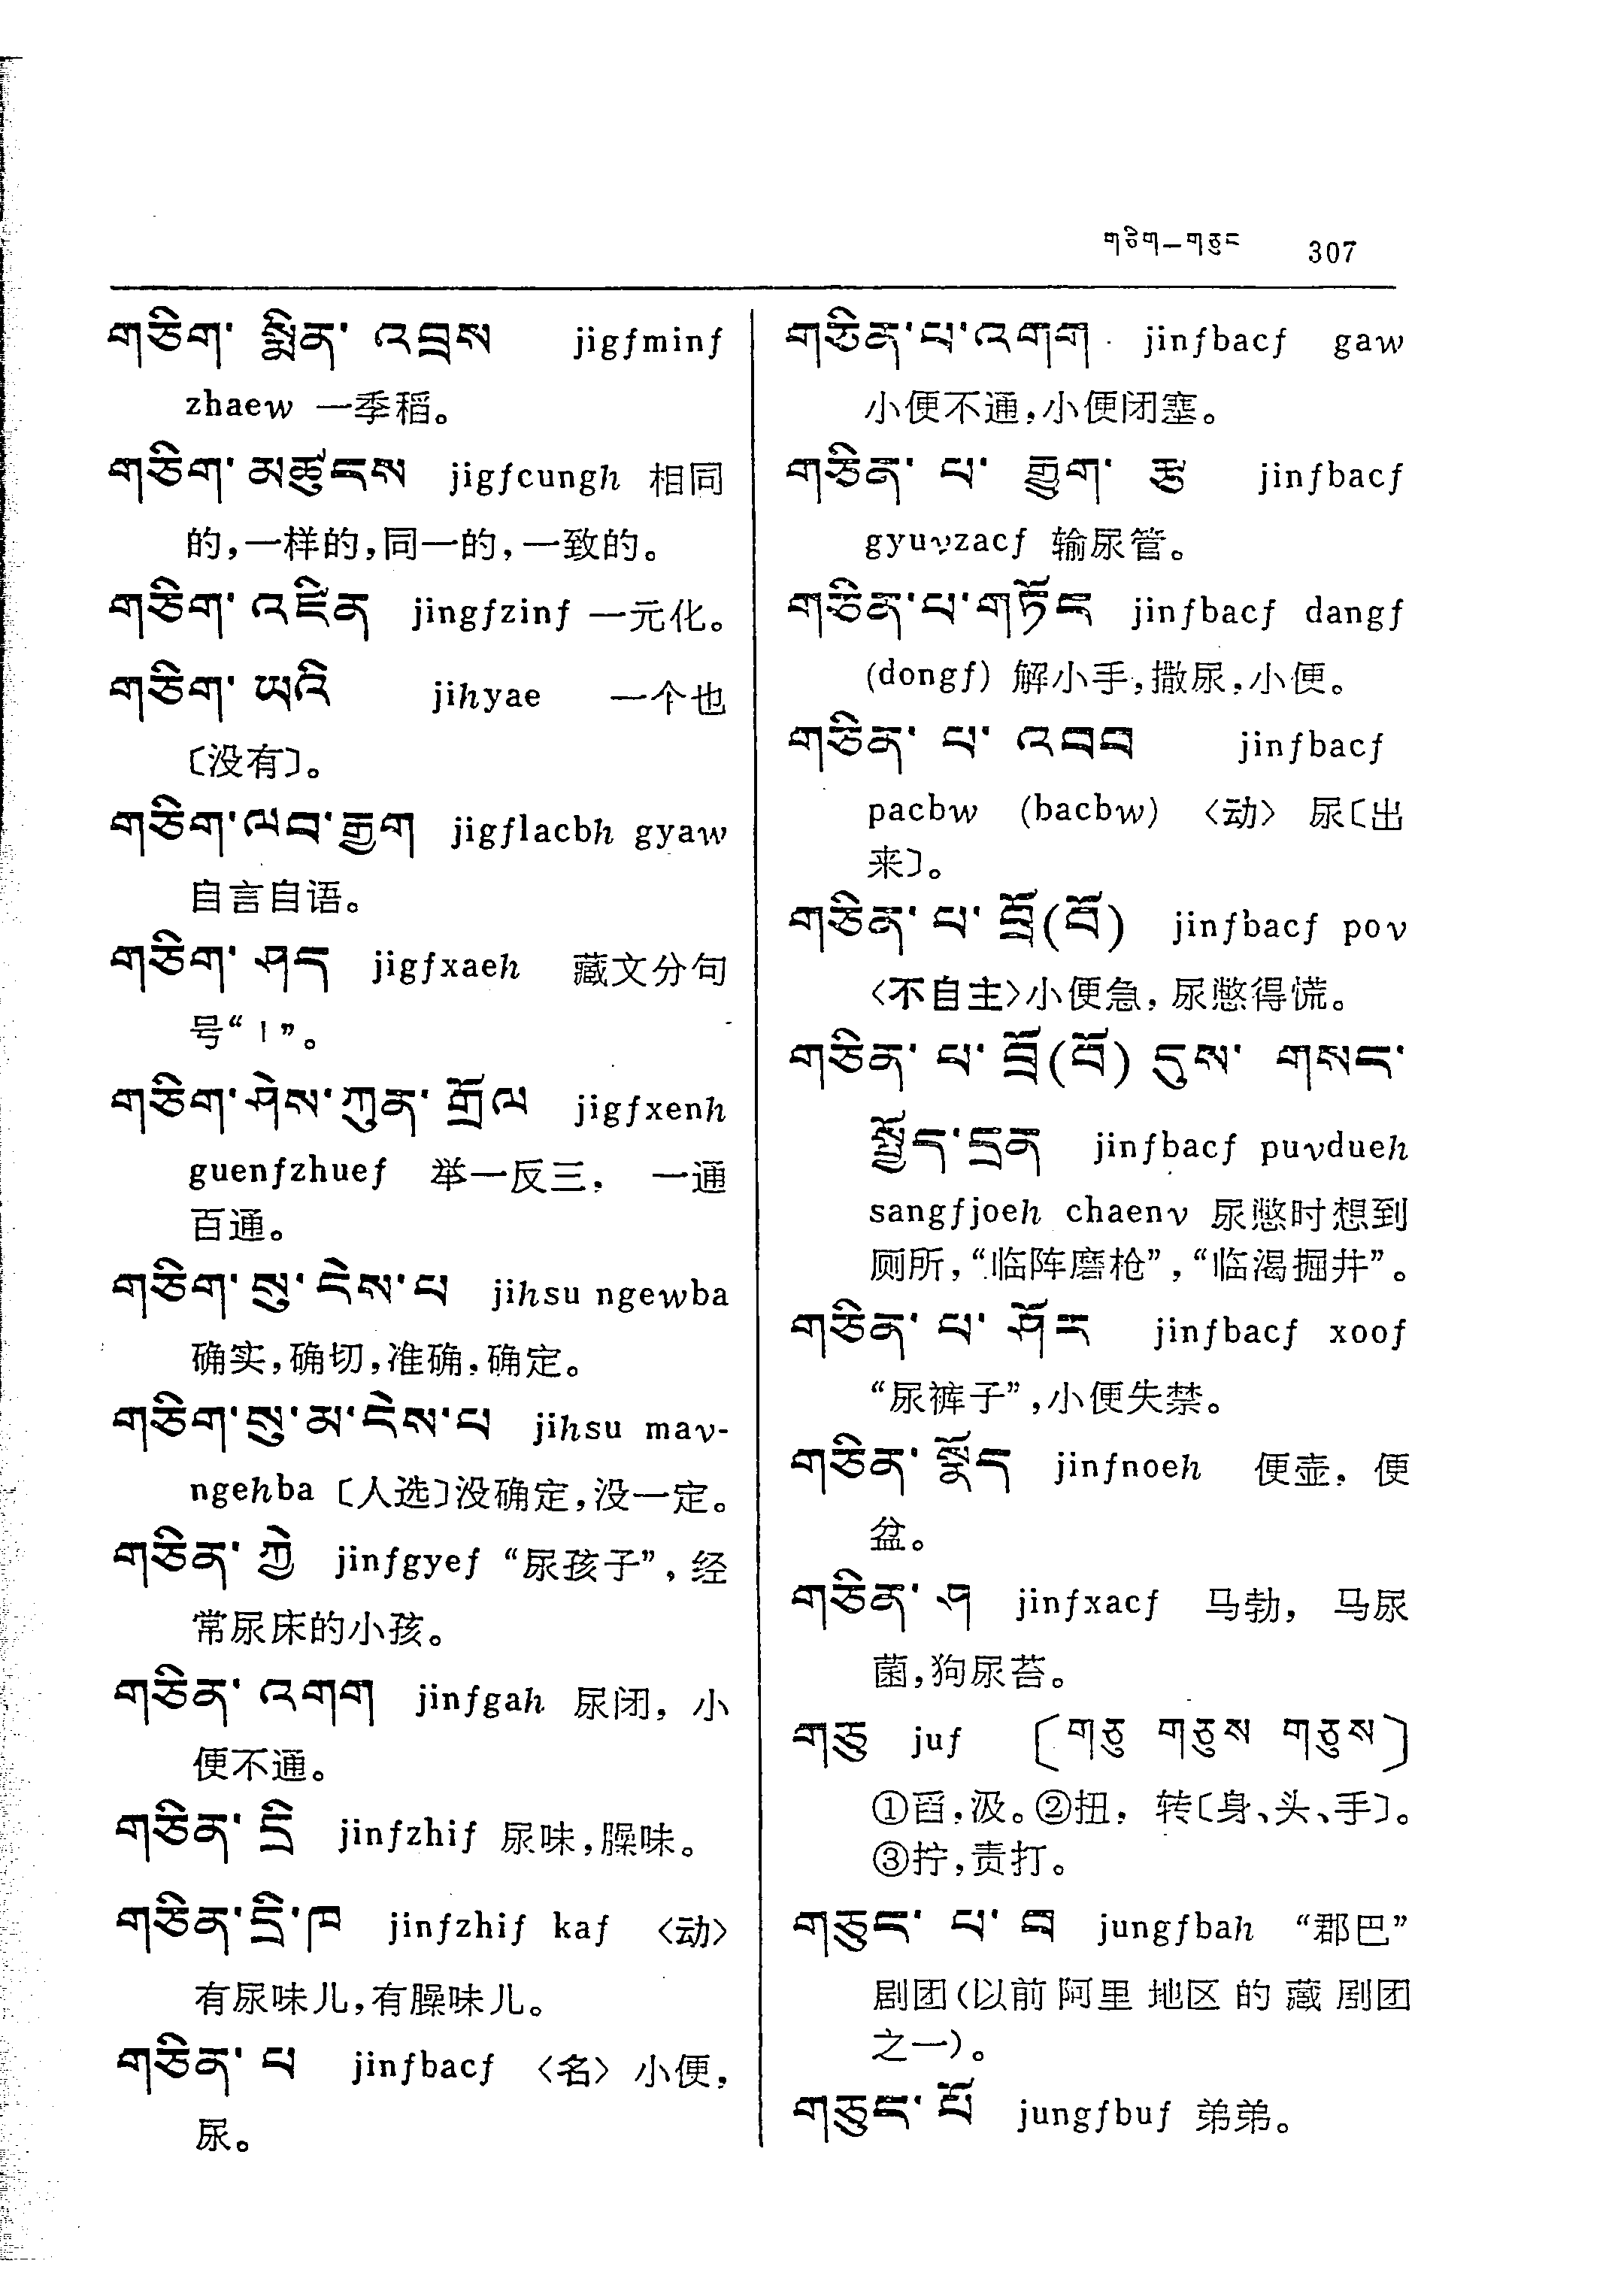 གཅིག—གཅུང 307
གཅིག་ སྨིན་ འབྲས jigfminf
zhaew 一季稻。
གཅིག་ མཚུངས jigfcungh 相同
的,一样的,同一的,一致的。
གཅིག་ འཛིན jingfzinf 一元化。
གཅིག་ ཡའི jihyae 一个也
〔没有〕。
གཅིག་ལབ་རྒྱག jigflacbh gyaw
自言自语。
གཅིག་ ཤད jigfxaeh 藏文分句
号“།”。
གཅིག་ཤེས་ཀུན་ གྲོལ jigfxenh
guenfzhuef 举一反三, 一通
百通。
གཅིག་ སུ་ ངེས་པ jihsu ngewba
确实,确切,准确,确定。
གཅིག་སུ་མ་ངེས་པ jihsu mav-
ngehba 〔人选〕没确定,没一定。
གཅིན་ ཀྱེ jinfgyef “尿孩子”,经
常尿床的小孩。
གཅིན་ འགག jinfgah 尿闭,小
便不通。
གཅིན་ དྲི jinfzhif 尿味,臊味。
གཅིན་དྲི་ཁ jinfzhif kaf 〈动〉
有尿味儿,有臊味儿。
གཅིན་ པ jinfbacf 〈名〉 小便,
尿。
གཅིན་པ་འགག jinfbacf gaw
小便不通,小便闭塞。
གཅིན་ པ་ རྒྱུག་ རྩ jinfbacf
gyuvzacf 输尿管。
གཅིན་པ་གཏོང jinfbacf dangf
(dongf) 解小手,撒尿,小便。
གཅིན་ པ་ འབབ jinfbacf
pacbw (bacbw) 〈动〉 尿〔出
来〕。
གཅིན་ པ་ བྲོ(བོ) jinfbacf pov
〈不自主〉小便急,尿憋得慌。
གཅིན་ པ་ བྲོ(བོ) དུས་ གསང་
སྤྱོད་དྲན jinfbacf puvdueh
sangfjoeh chaenv 尿憋时想到
厕所,“临阵磨枪”,“临渴掘井”。
གཅིན་ པ་ ཤོར jinfbacf xoof
“尿裤子”,小便失禁。
གཅིན་ སྣོད jinfnoeh 便壶,便
盆。
གཅིན་ ཤ jinfxacf 马勃, 马尿
菌,狗尿苔。
གཅུ juf 〔གཅུ གཅུས གཅུས〕
①舀,汲。②扭, 转〔身、头、手〕。
③拧,责打。
གཅུང་ པ་ བ jungfbah “郡巴”
剧团(以前阿里地区的藏剧团
之一)。
གཅུང་ པོ jungfbuf 弟弟。